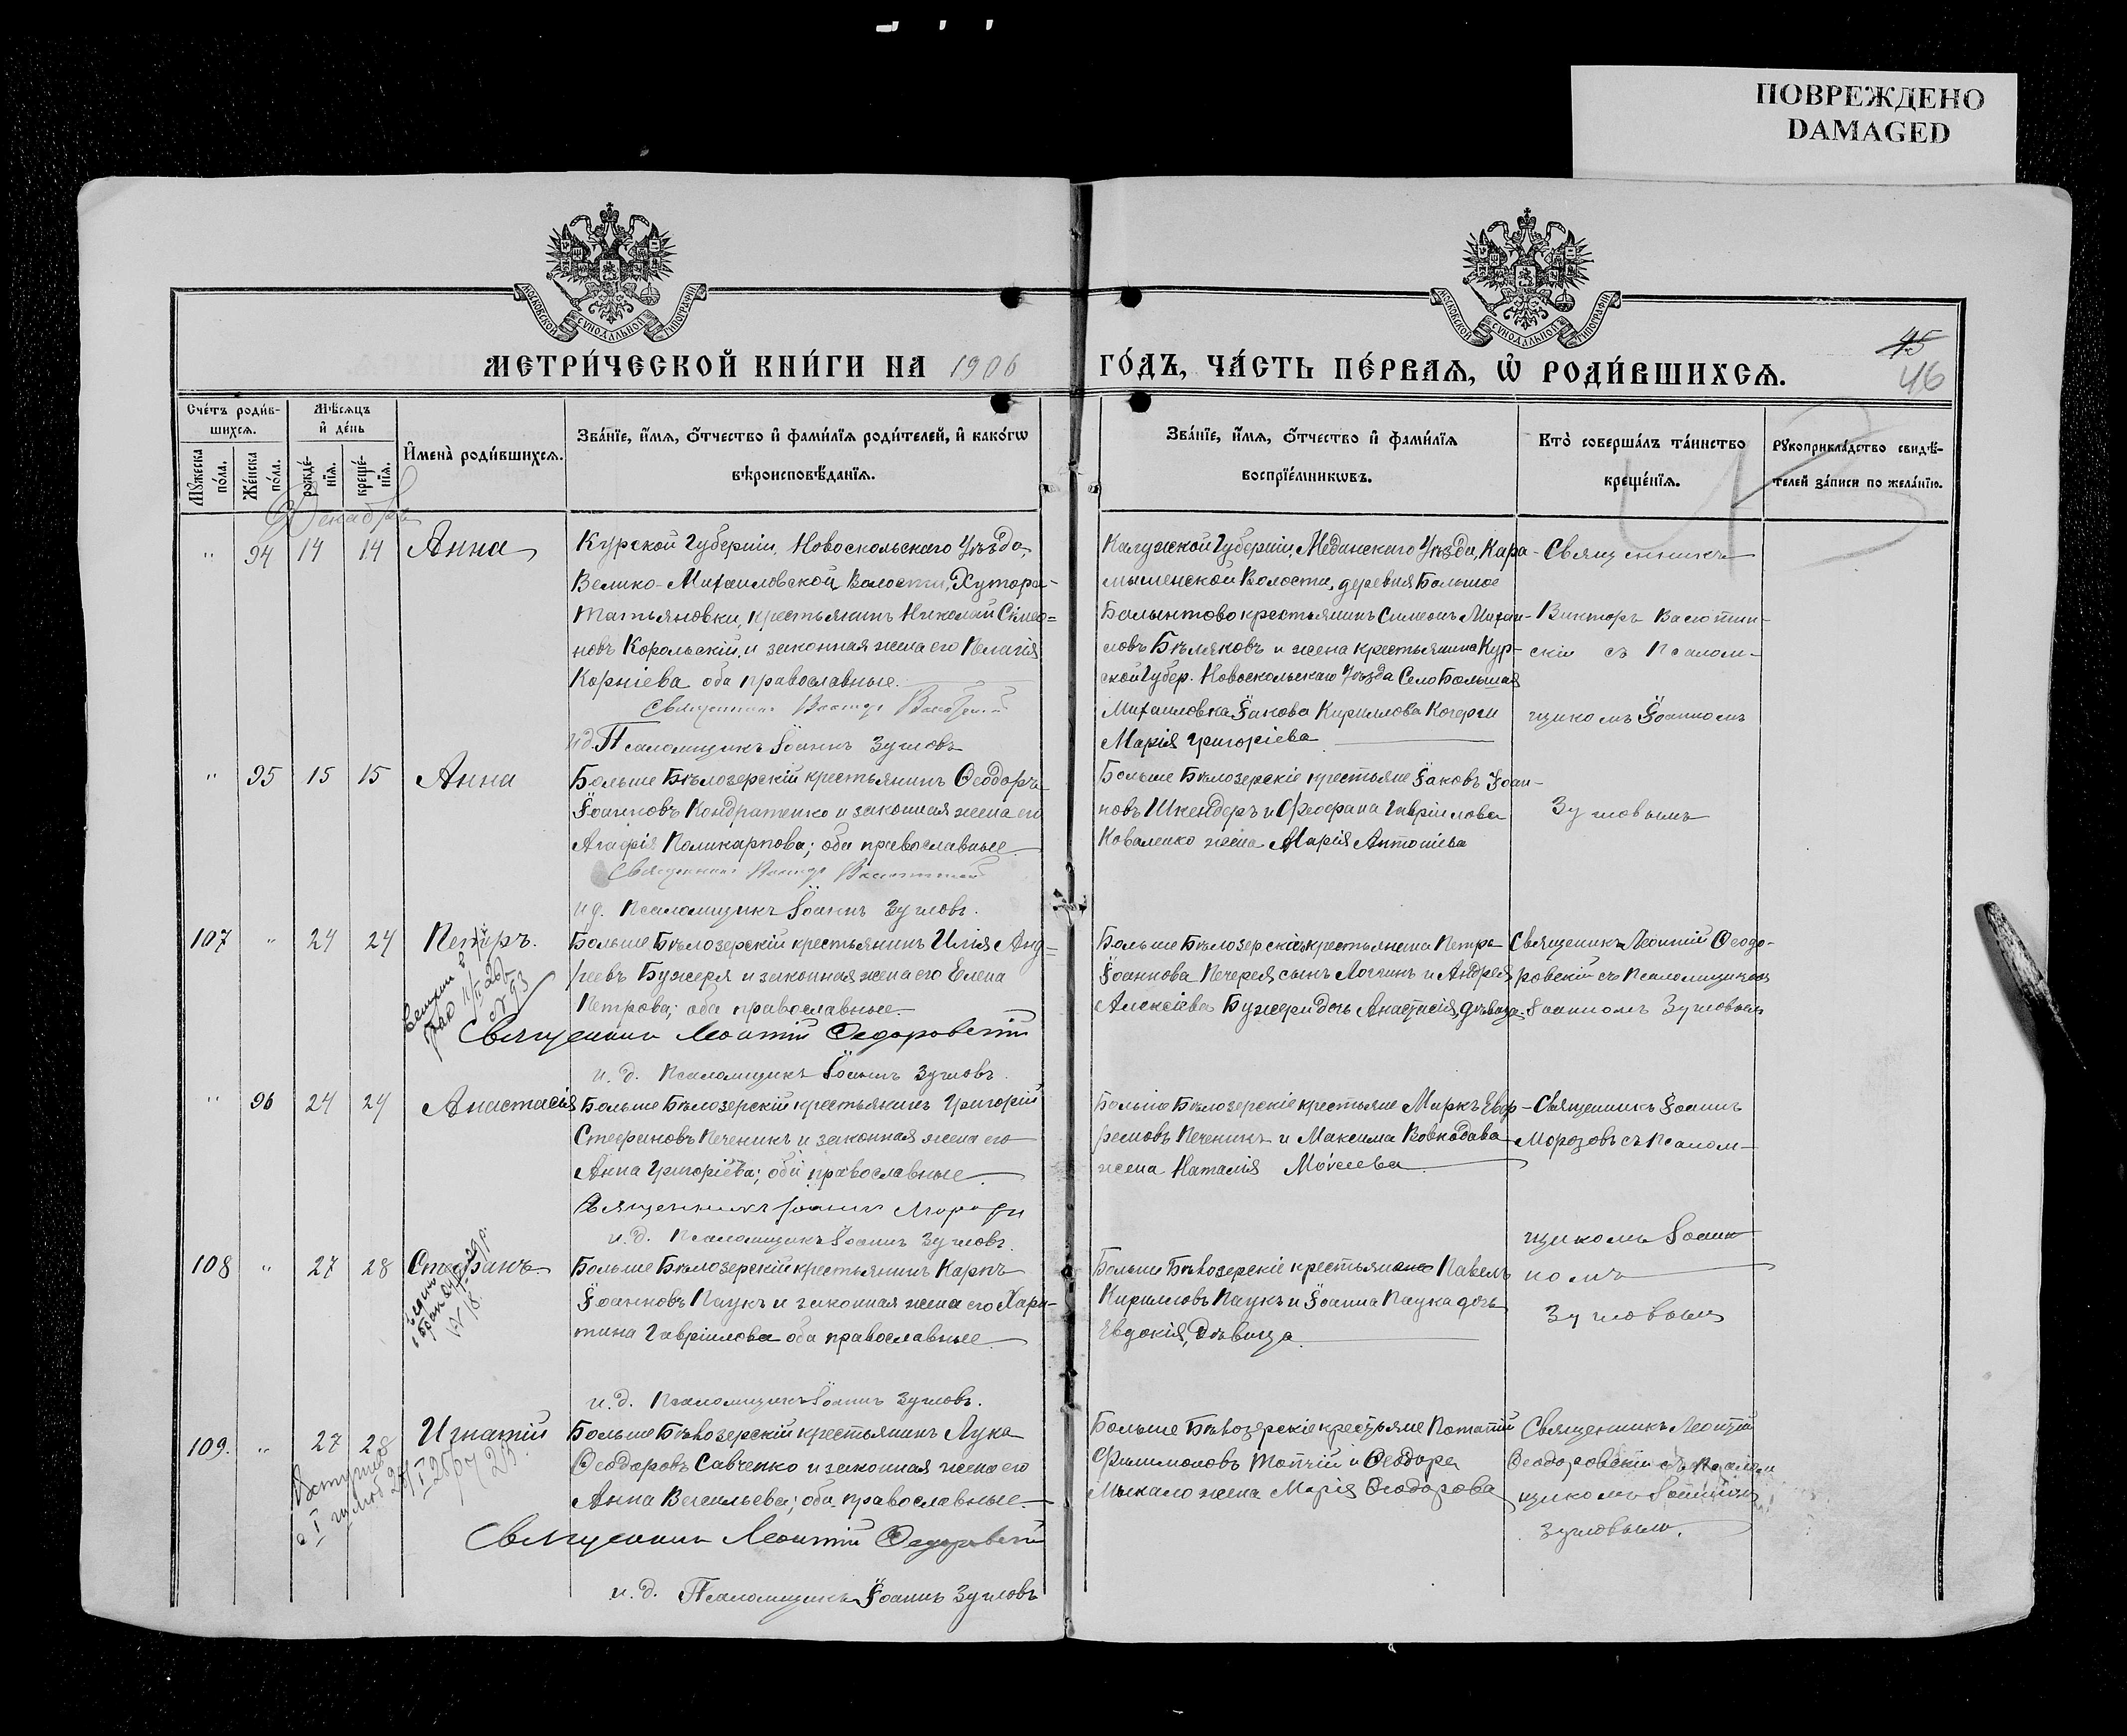 ПОВРЕЖДЕНО
DAMAGED
МОСКОВСКОЙ СѴНОДАЛЬНОЙ ТИПОГРАФІИ
МОСКОВСКОЙ СѴНОДАЛЬНОЙ ТИПОГРАФІИ
МЕТРИ́ЧЕСКОЙ КНИ́ГИ НА 1906
ГО́ДЪ, ЧА́СТЬ ПЕ́РВАѦ, Ѡ҆ РОДИ́ВШИХСѦ.
45
46
Сче́тъ роди́в-
шихсѧ.
Мѣ́сѧцъ
и҆ де́нь
Мꙋ́жеска
по́ла.
Же́нска
по́ла.
рожде́-
нїѧ.
креще́-
нїѧ.
И҆мена̀ роди́вшихсѧ.
Зва́нїе, и҆́мѧ, ѻ҆́тчество и҆ фами́лїѧ роди́телей, и҆ како́гѡ
вѣроисповѣ́данїѧ.
Зва́нїе, и҆́мѧ, ѻ҆́тчество и҆ фами́лїѧ
воспрїе́мникѡвъ.
Кто̀ соверша́лъ та́инство
креще́нїѧ.
Рꙋкоприкла́дство свидѣ́-
телей за́писи по жела́нїю.
Декабрь
" 94 14 14 Анна
Курской Губерніи, Новооскольскаго Уѣзда,
Велико-Михаиловской Волости, Хутора-
Татьяновки, крестьянинъ Николай Сѵмео=
новъ Корольскій, и законная жена его Пелагія
Корніева оба православные.
Священникъ Викторъ
и.д. Псаломщикъ Іоаннъ Зугловъ
Калужской Губерніи, Мединскаго Уѣзда, Кара-
мышенской Волости, деревня Большое
Болынтово крестьянинъ Симеонъ Михаи-
ловъ Бѣляковъ и жена крестьянина Кур-
ской Губер. Новооскольскаго Уѣзда Село Большая
Михаиловка Іакова Кириллова Кочерги
Марія Григоріева
Священникъ
Викторъ
скій съ Псалом-
щикомъ Іоанномъ
Зугловымъ
" 95 15 15 Анна
Больше Бѣлозерскій крестьянинъ Ѳеодоръ
Іоанновъ Кондратенко и законная жена его
Агафія Поликарпова; оба православные
Священникъ Викторъ
и.д. Псаломщикъ Іоаннъ Зугловъ.
Больше Бѣлозерскіе крестьяне Іаковъ Іоан-
новъ Шкендеръ и Феофана Гавріилова
Коваленко жена Марія Антоніева
107 " 24 24 Петръ.
Больше Бѣлозерскій крестьянинъ Илія Анд=
реевъ Бужеря и законная жена его Елена
Петрова; оба православные
Священникъ Леонтій Ѳедоровскій
и. д. Псаломщикъ Іоаннъ Зугловъ.
Больше Бѣлозерскіе крестьянина Петра
Іоаннова Печерея сынъ Логгинъ и Андрея
Алексіева Бужери дочь Анастасія, дѣвица.
Священикъ Леонтій Ѳеодо-
ровскій съ Псаломщикомъ
Іоанномъ Зугловымъ
" 96 24 24 Анастасія
Больше Бѣлозерскій крестьянинъ Григорій
Стефановъ Печеникъ и законная жена его
Анна Григоріева; оба православные.
Священникъ Іоаннъ Морозовъ
и.д. Псаломщикъ Іоаннъ Зугловъ.
Больше Бѣлозерскіе крестьяне Маркъ Евф-
ремовъ Печеникъ и Максима Вовкодава
жена Наталія Моѵсеева
Священникъ Іоаннъ
Морозовъ съ Псалом-
щикомъ Іоан-
номъ
Зугловымъ
108 " 27 28 Стефанъ
Больше Бѣлозерскій крестьянинъ Карпъ
Іоанновъ Паукъ и законная жена его Хари-
тина Гавріилова оба православные
и.д. Псаломщикъ Іоаннъ Зугловъ.
Больше Бѣлозерскіе крестьяне Павелъ
Кирилловъ Паукъ и Іоанна Паука дочь
Евдокія, дѣвица
109. " 27 28 Игнатій
Больше Бѣлозерскій крестьянинъ Лука
Ѳеодоровъ Савченко и законная жена его
Анна Васильева; оба православные
Священникъ Леонтій Ѳедоровскій
и.д. Псаломщикъ Іоаннъ Зугловъ
Больше Бѣлозерскіе крестьяне Потапій
Филимоновъ Топчій и Ѳеодора
Мыкало жена Марія Ѳеодорова
Священникъ Леонтій
Ѳеодоровскій съ Псалом
щикомъ Іоанномъ
Зугловымъ.